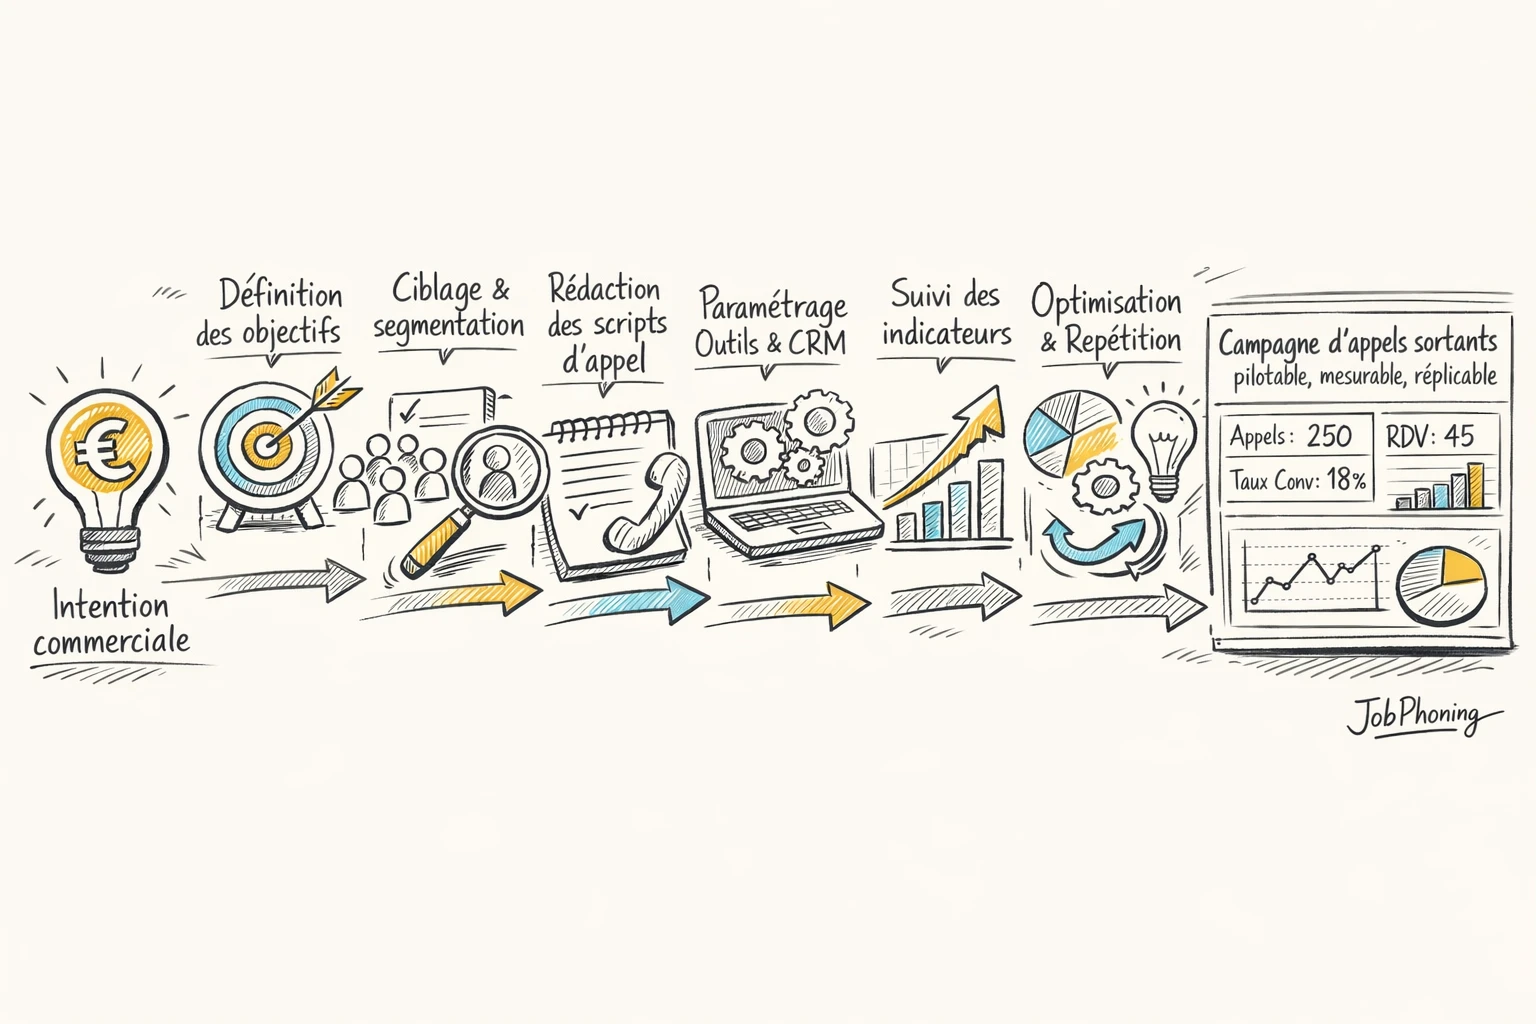 Intention
commerciale
Définition
des objectifs
Ciblage &
segmentation
Rédaction
des scripts
d'appel
Paramétrage
Outils & CRM
Suivi des
indicateurs
Optimisation
& Repétition
Campagne d'appels sortants
pilotable, mesurable, réplicable
Appels: 250
RDV: 45
Taux Conv: 18%
JobPhoning